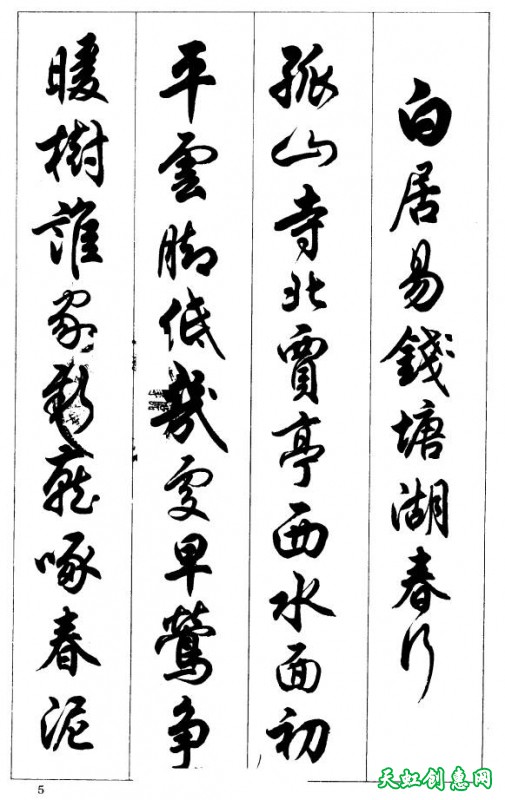 白居易錢塘湖春行
孤山寺北賈亭西水面初
平雲脚低幾處早鶯争
暖樹誰家新燕啄春泥
5
天虹创意网